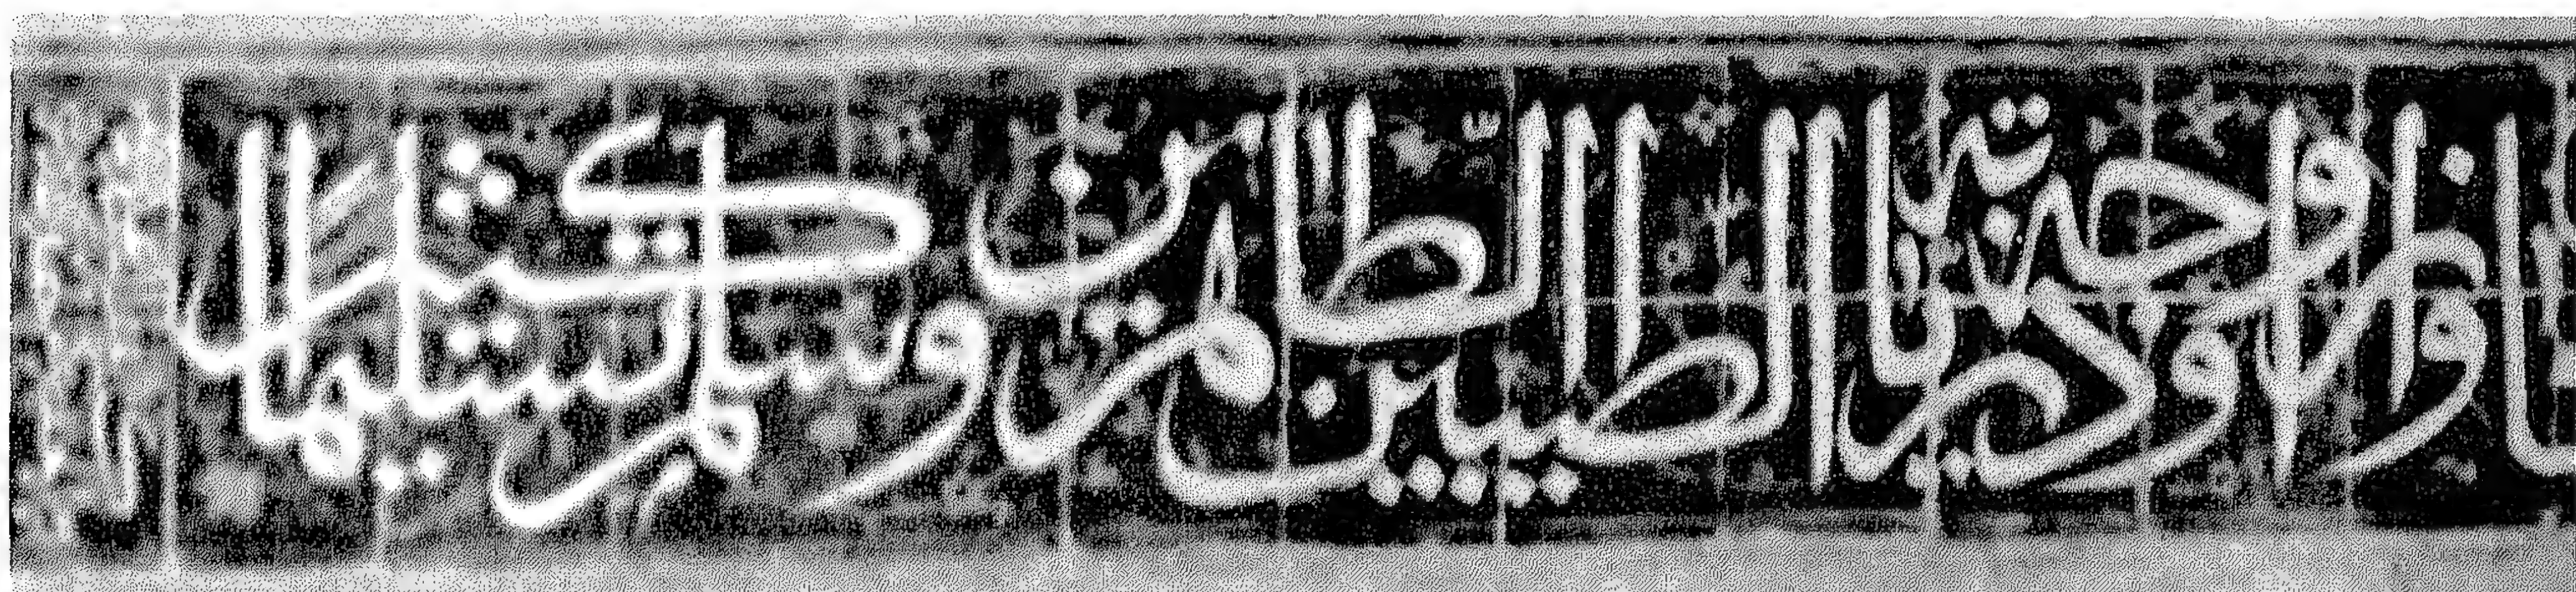 وازواجه وذرياته الطيبين الطاهرين وسلم تسليما كثيرا